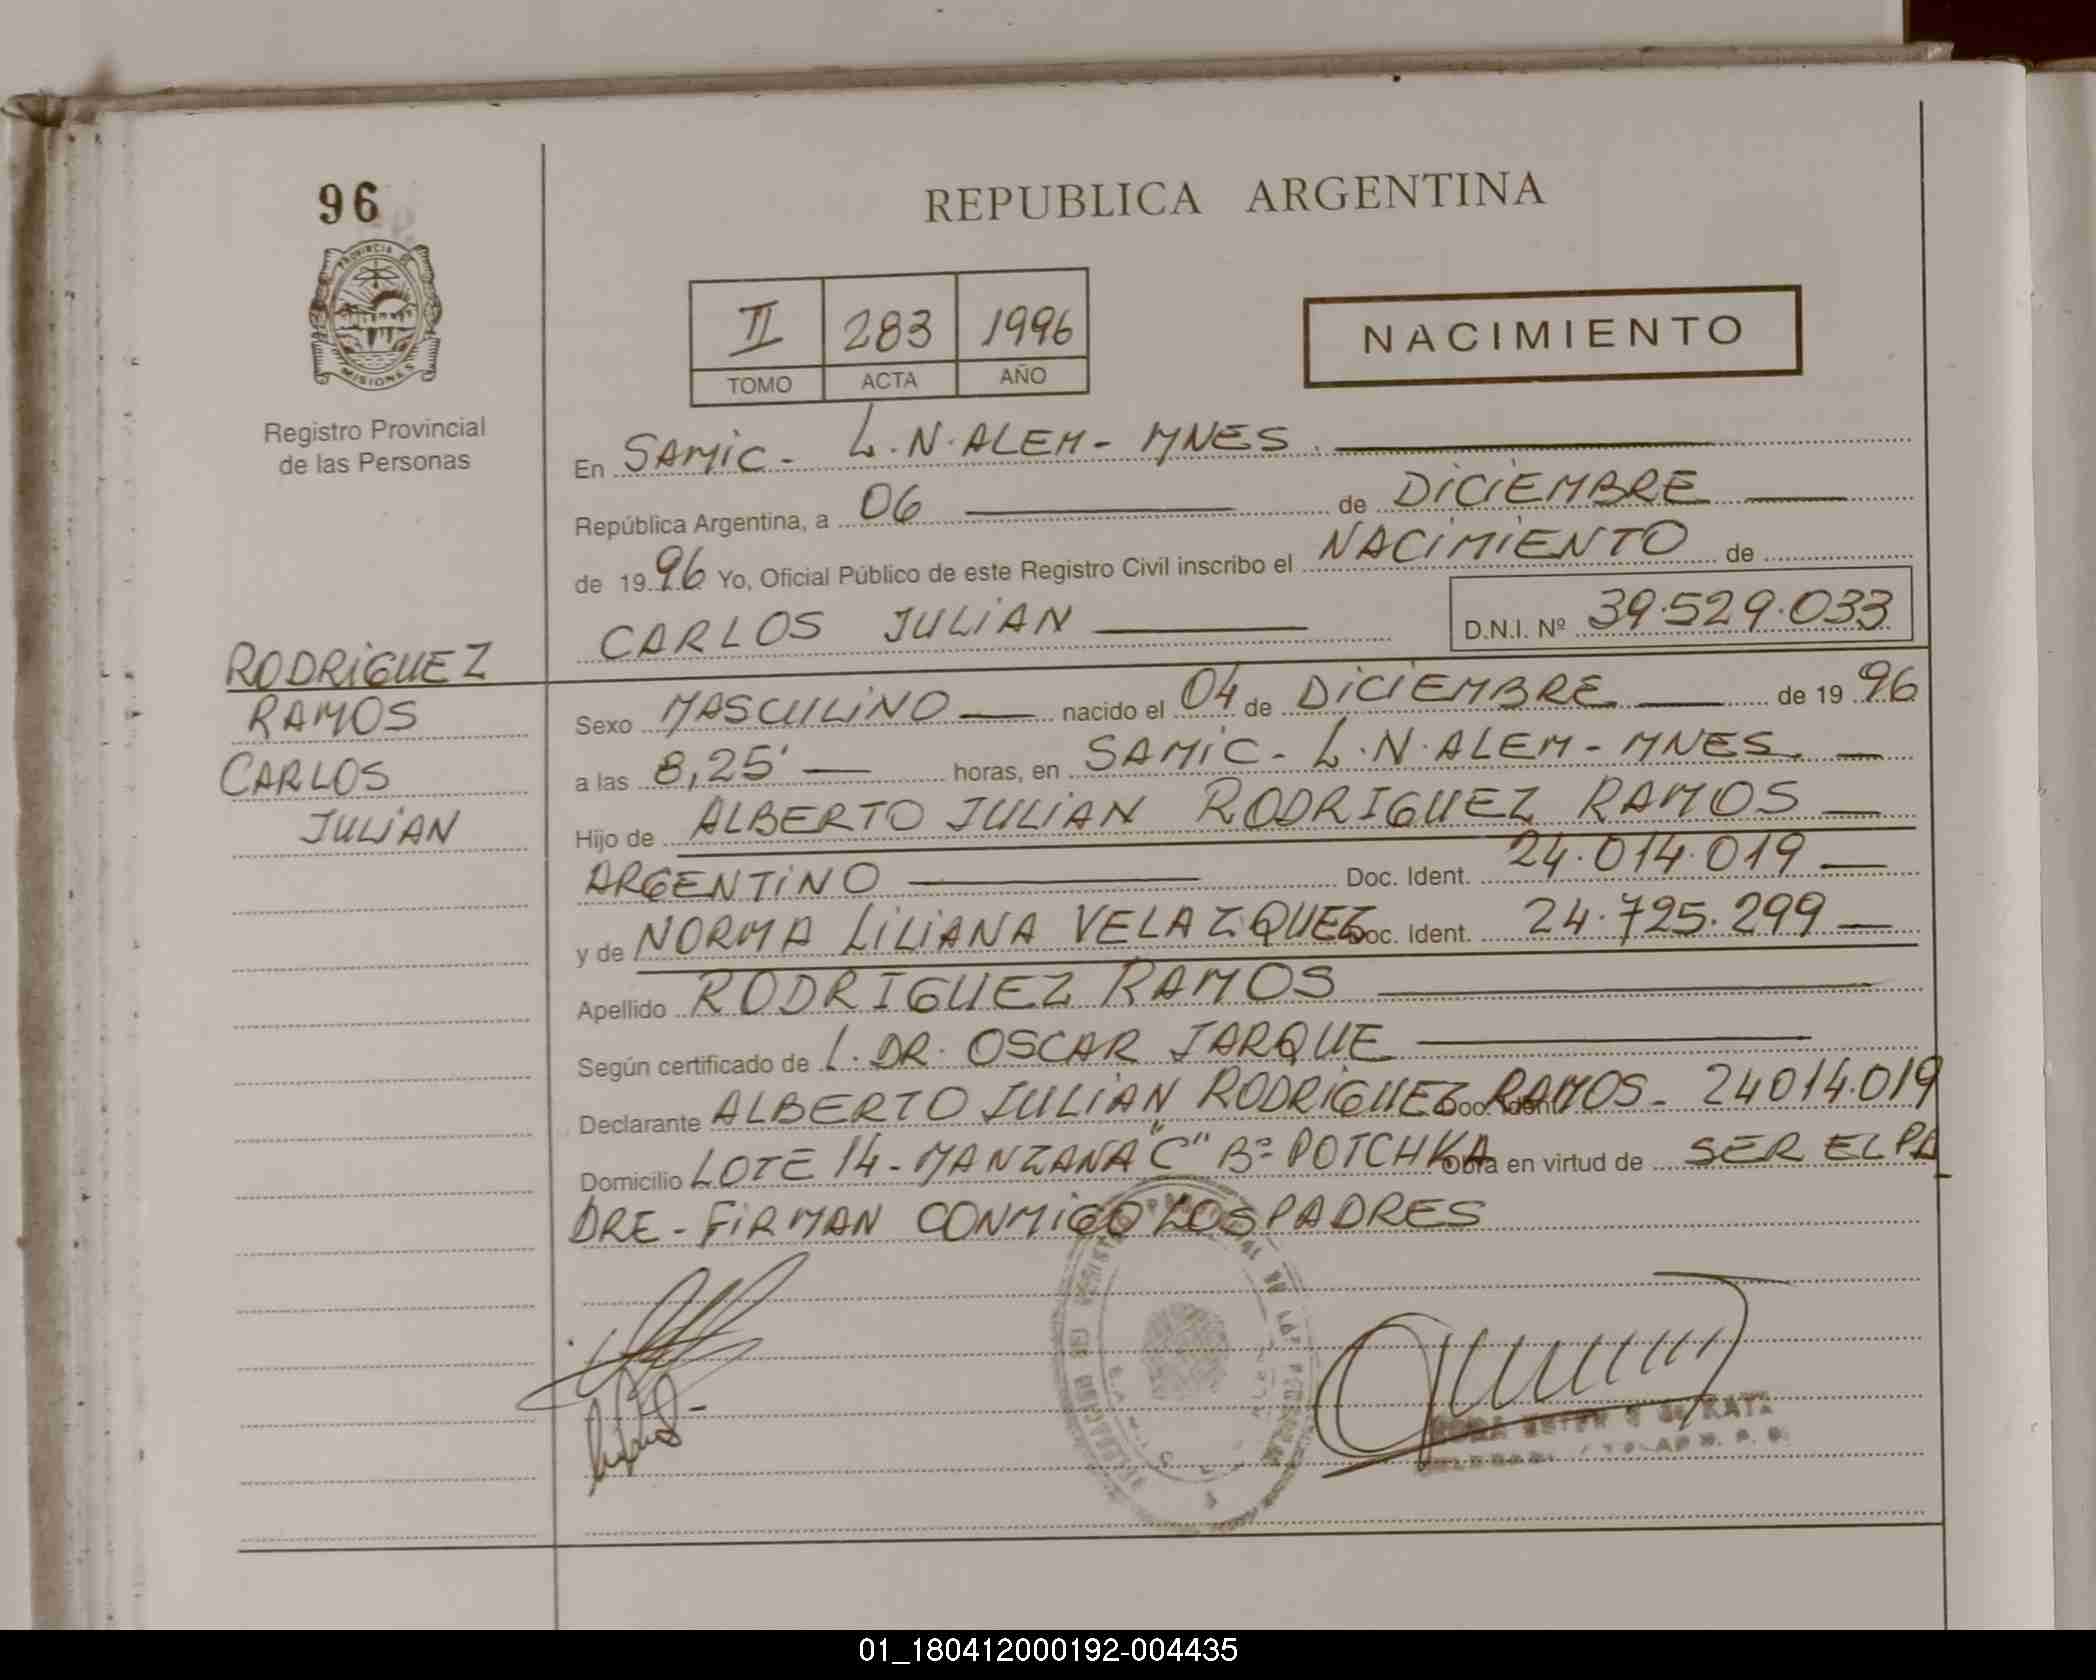 96
REPUBLICA ARGENTINA
PROVINCIA DE
MISIONES
Registro Provincial
de las Personas
II 283 1996
TOMO ACTA AÑO
NACIMIENTO
En SAMIC - L.N. ALEM - MNES.
República Argentina, a 06 de DICIEMBRE
de 1996 Yo, Oficial Público de este Registro Civil inscribo el NACIMIENTO de
CARLOS JULIAN D.N.I. Nº 39.529.033
RODRIGUEZ
RAMOS
CARLOS
JULIAN
Sexo MASCULINO nacido el 04 de DICIEMBRE de 1996
a las 8,25' horas, en SAMIC - L.N. ALEM - MNES.
Hijo de ALBERTO JULIAN RODRIGUEZ RAMOS
ARGENTINO Doc. Ident. 24.014.019
y de NORMA LILIANA VELAZQUEZ Doc. Ident. 24.725.299
Apellido RODRIGUEZ RAMOS
Según certificado de L. DR. OSCAR JARQUE
Declarante ALBERTO JULIAN RODRIGUEZ RAMOS - Doc. Ident. 24014.019
Domicilio LOTE 14 - MANZANA "C" Bº POTCHKA Obra en virtud de SER EL PA
DRE - FIRMAN CONMIGO LOS PADRES
01_180412000192-004435